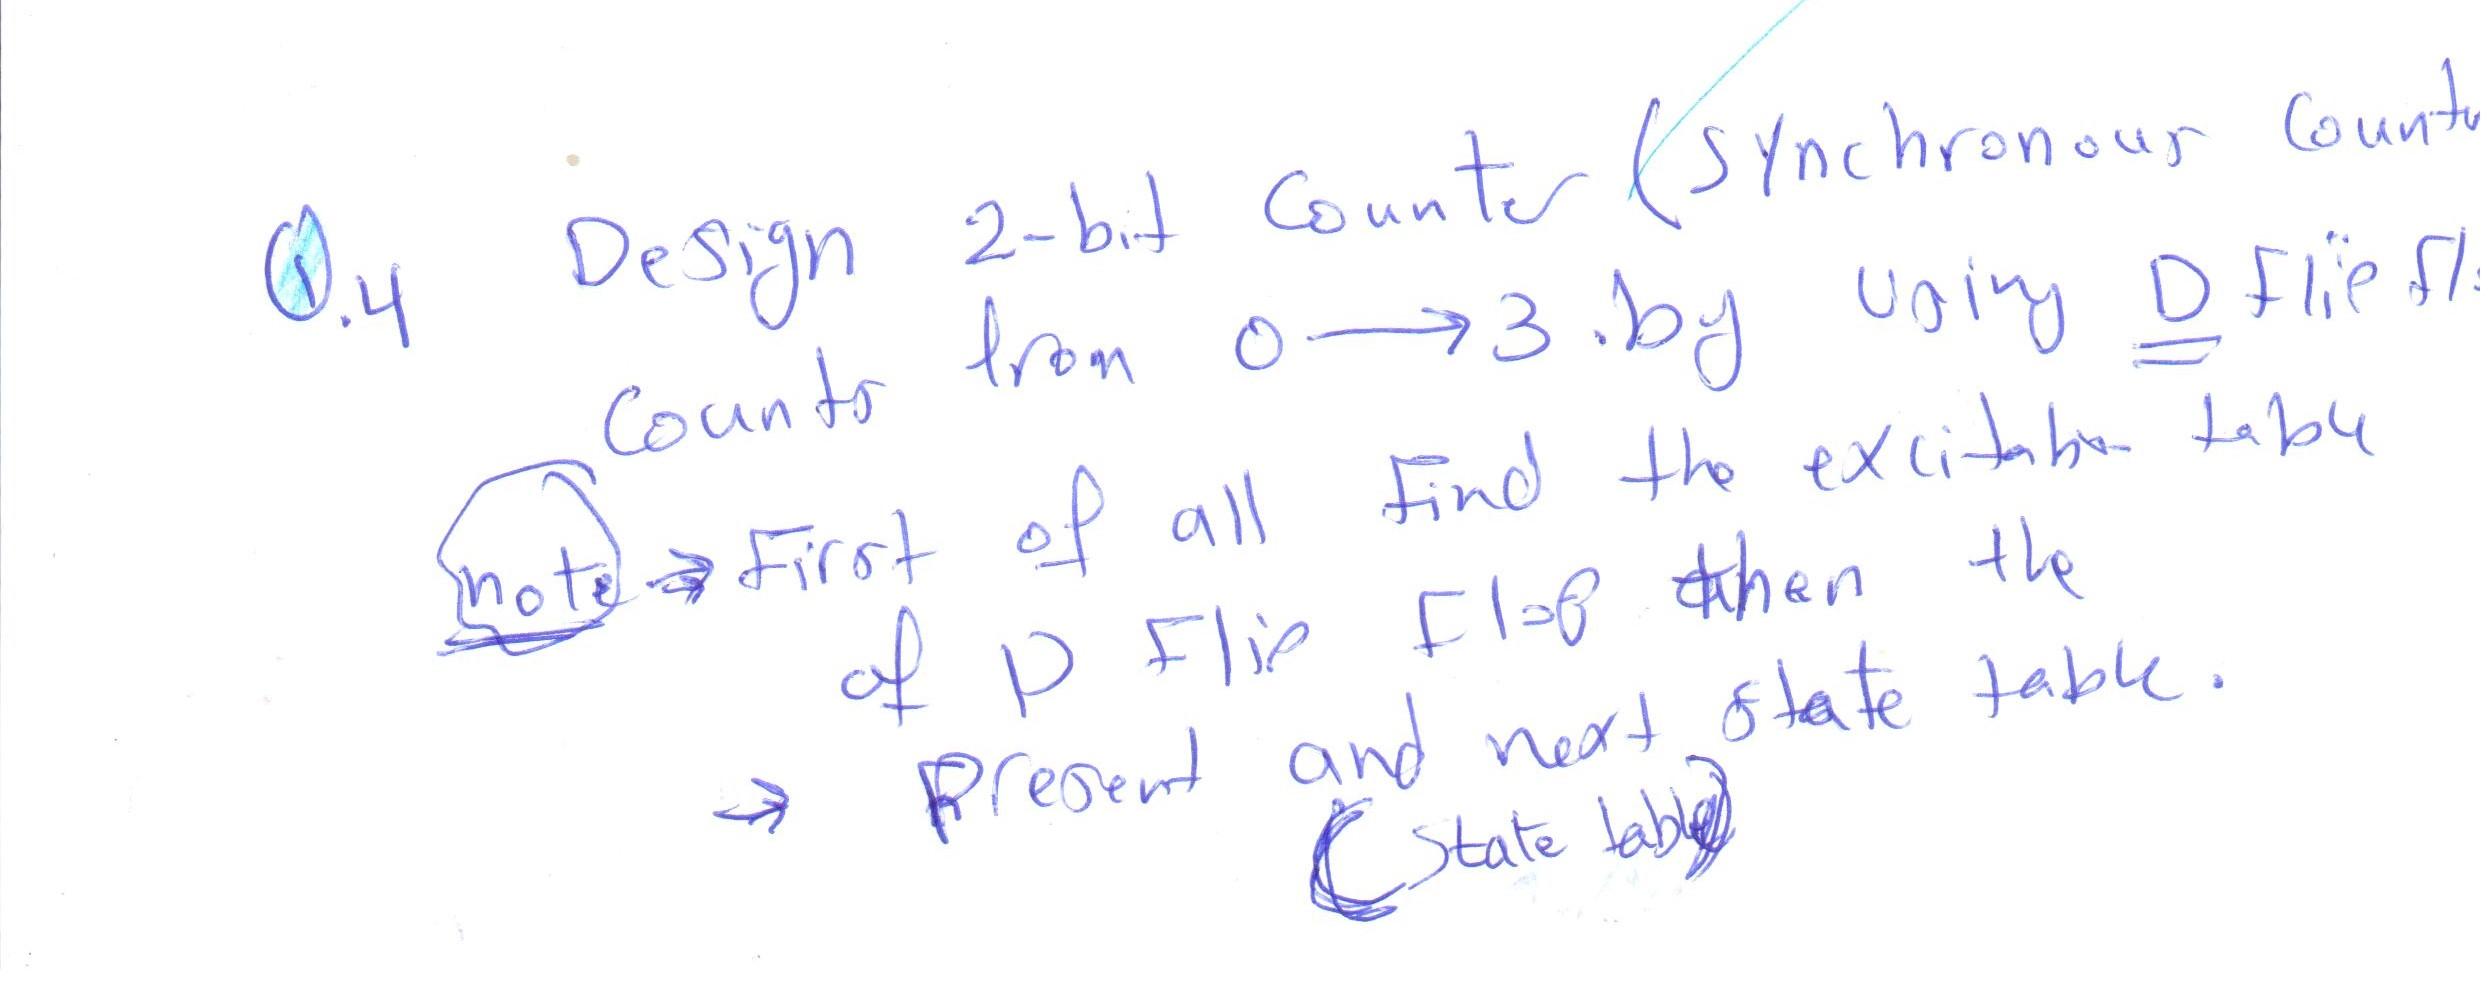 Q.4 Design 2-bit Counter (synchronous Counte
Counts from 0 → 3 . by Using D Flip Flo
note → First of all Find the excitation table
of D Flip Flop then the
→ Present and next state table.
(State table)